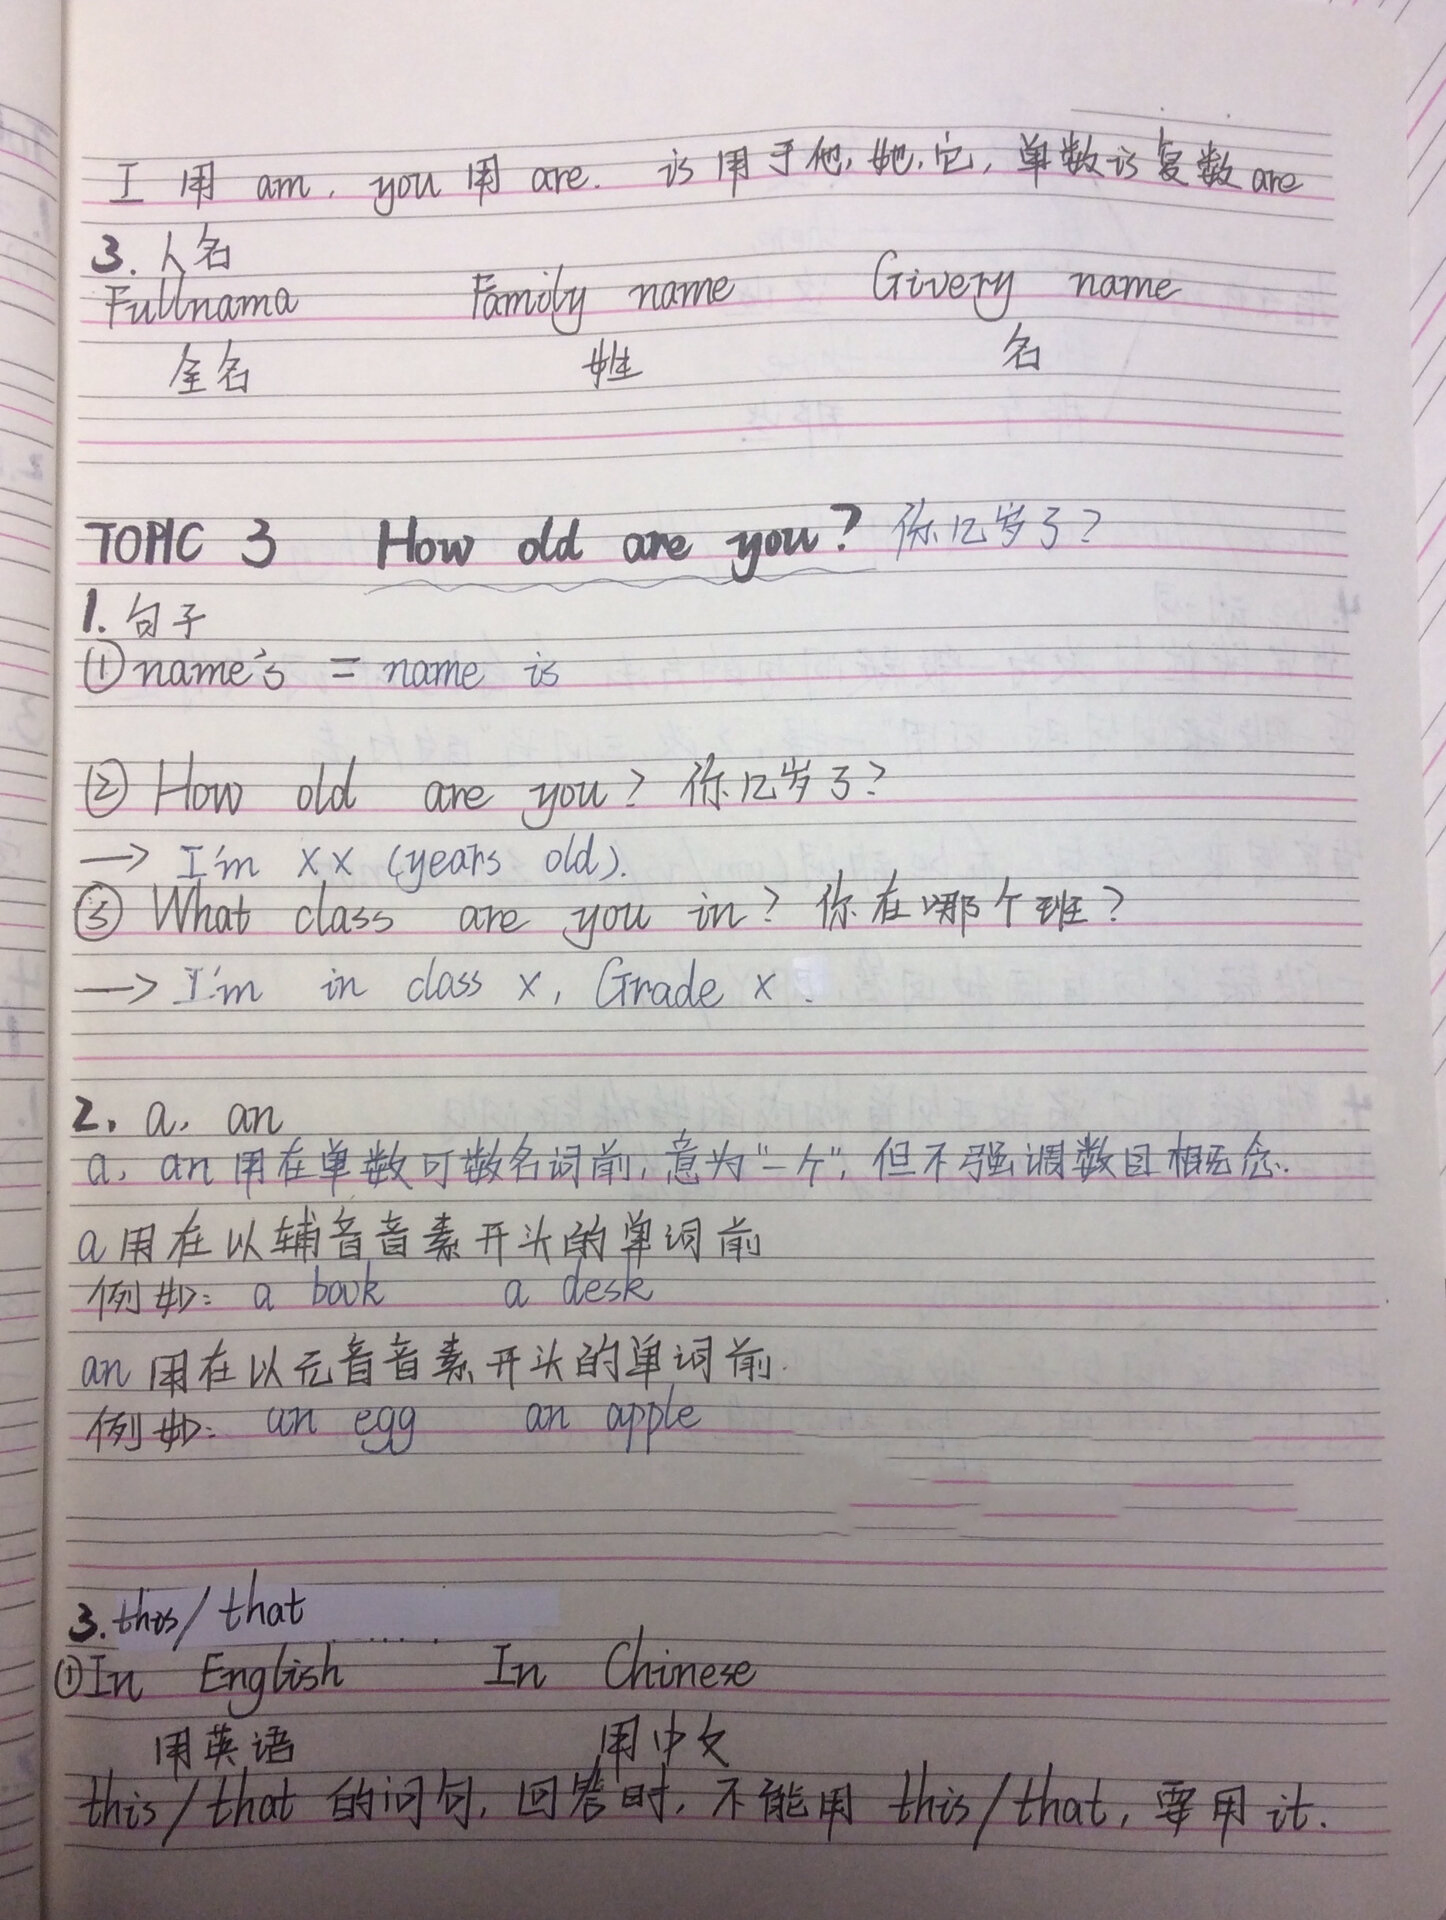 I 用 am, you 用 are. is 用于他,她,它,单数is复数are
3. 人名
Fullnama Family name Givery name
全名 姓 名
TOPIC 3 How old are you? 你几岁了?
1. 句子
① name's = name is
② How old are you? 你几岁了?
→ I'm xx (years old).
③ What class are you in? 你在哪个班?
→ I'm in class x, Grade x.
2. a, an
a, an 用在单数可数名词前,意为"一个",但不强调数目概念.
a 用在以辅音音素开头的单词前
例如: a book a desk
an 用在以元音音素开头的单词前.
例如: an egg an apple
3. this/that
① In English In Chinese
用英语 用中文
this/that 的问句,回答时,不能用 this/that,要用 it.